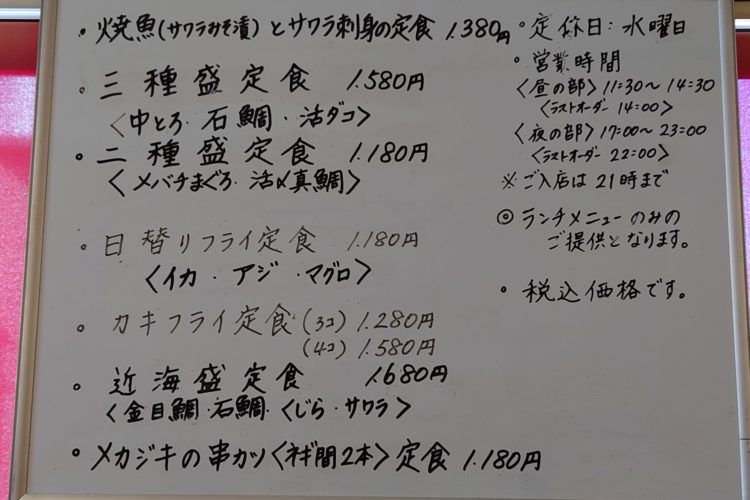 ・焼魚(サワラみそ漬)とサワラ刺身の定食 1.380円
。三種盛定食 1.580円
〈中とろ・石鯛・活ダコ〉
・二種盛定食 1.180円
〈メバチまぐろ・活〆真鯛〉
。日替りフライ定食 1.180円
〈イカ・アジ・マグロ〉
。カキフライ定食(3コ) 1.280円
(4コ) 1.580円
。近海盛定食 1.680円
〈金目鯛・石鯛・くじら・サワラ〉
。メカジキの串カツ〈ネギ間2本〉定食 1.180円
。定休日:水曜日
。営業時間
〈昼の部〉11:30〜14:30
〈ラストオーダー 14:00〉
〈夜の部〉17:00〜23:00
〈ラストオーダー 22:00〉
※ご入店は21時まで
◎ランチメニューのみの
ご提供となります。
。税込価格です。